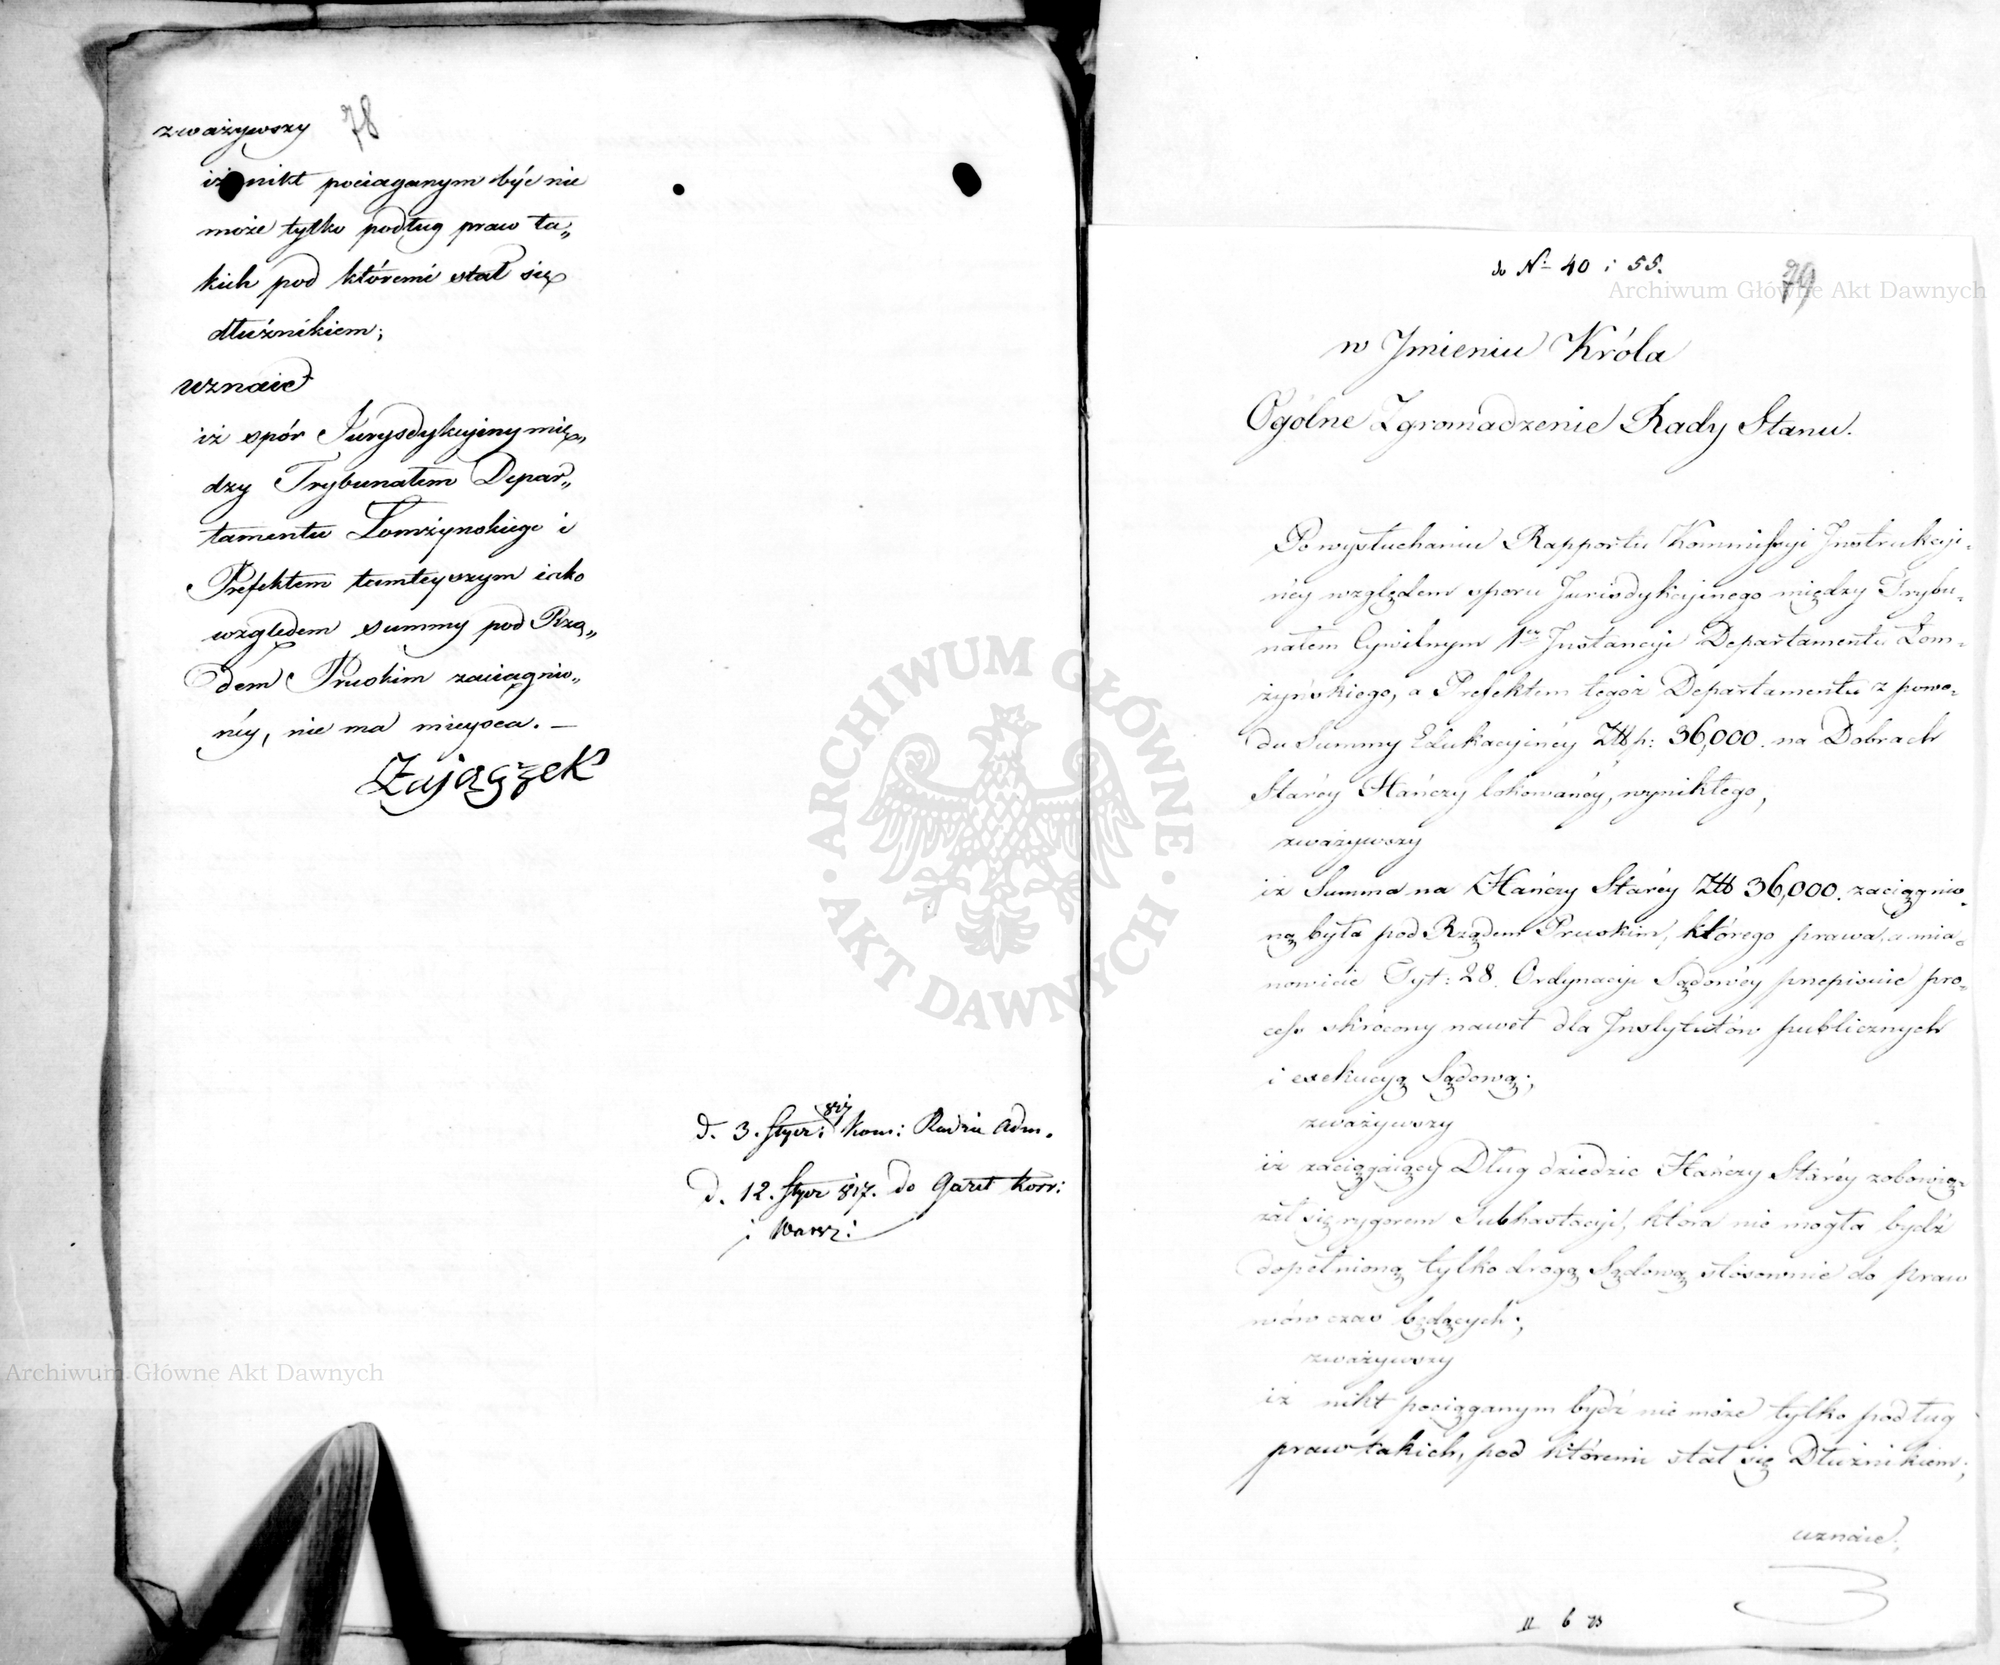 78
zważywszy
iż nikt pociąganym być nie
może tylko podług praw ta„
kich pod któremi stał się
dłużnikiem;
uznaie
iż spór Jurysdykcyiny mię„
dzy Trybunałem Depar„
tamentu Łomżyńskiego i
Prefektem tamteyszym iako
względem summy pod Rzą„
dem Pruskim zaciągnio„
néy, nie ma mieysca. —
Zajączek
d. 3. Stycz: 817 Kom: Radzie Adm.
d. 12. Stycz 817. do Gazet Korr:
i Warsz:
79
do Nr 40 i 55.
w Jmieniu Króla
Ogólne Zgromadzenie Rady Stanu.
Po wysłuchaniu Rapportu Kommissyi Instrukcyi-
néy względem sporu Jurisdykcyinego między Trybu-
nałem Cywilnym 1ey Instancyi Departamentu Łom-
żyńskiego, a Prefektem tegoż Departamentu z powo-
du Summy Edukacyinéy Złłp: 36,000. na Dobrach
Staréy Hańczy lokowanéy, wynikłego,
zważywszy
iż Summa na Hańczy Staréy Złł 36,000. zaciągnio-
ną była pod Rządem Pruskim, którego prawa, a mia-
nowicie Tyt: 28. Ordynacyi Sądowéy przepisuie pro-
cess skrócony nawet dla Instytutów publicznych
i exekucyą Sądową;
zważywszy
iż zaciągaiący Dług dziedzic Hańczy Staréy zobowią-
zał się rygorem Subhastacyi, ktora nie mogła bydź
dopełnioną tylko drogą Sądową stósownie do praw
wówczas będących;
zważywszy
iż nikt pociąganym bydź nie może tylko podług
praw takich, pod któremi stał się Dłużnikiem;
uznaie.
II 6 73
Archiwum Główne Akt Dawnych
Archiwum Główne Akt Dawnych
· ARCHIWUM GŁÓWNE · AKT DAWNYCH